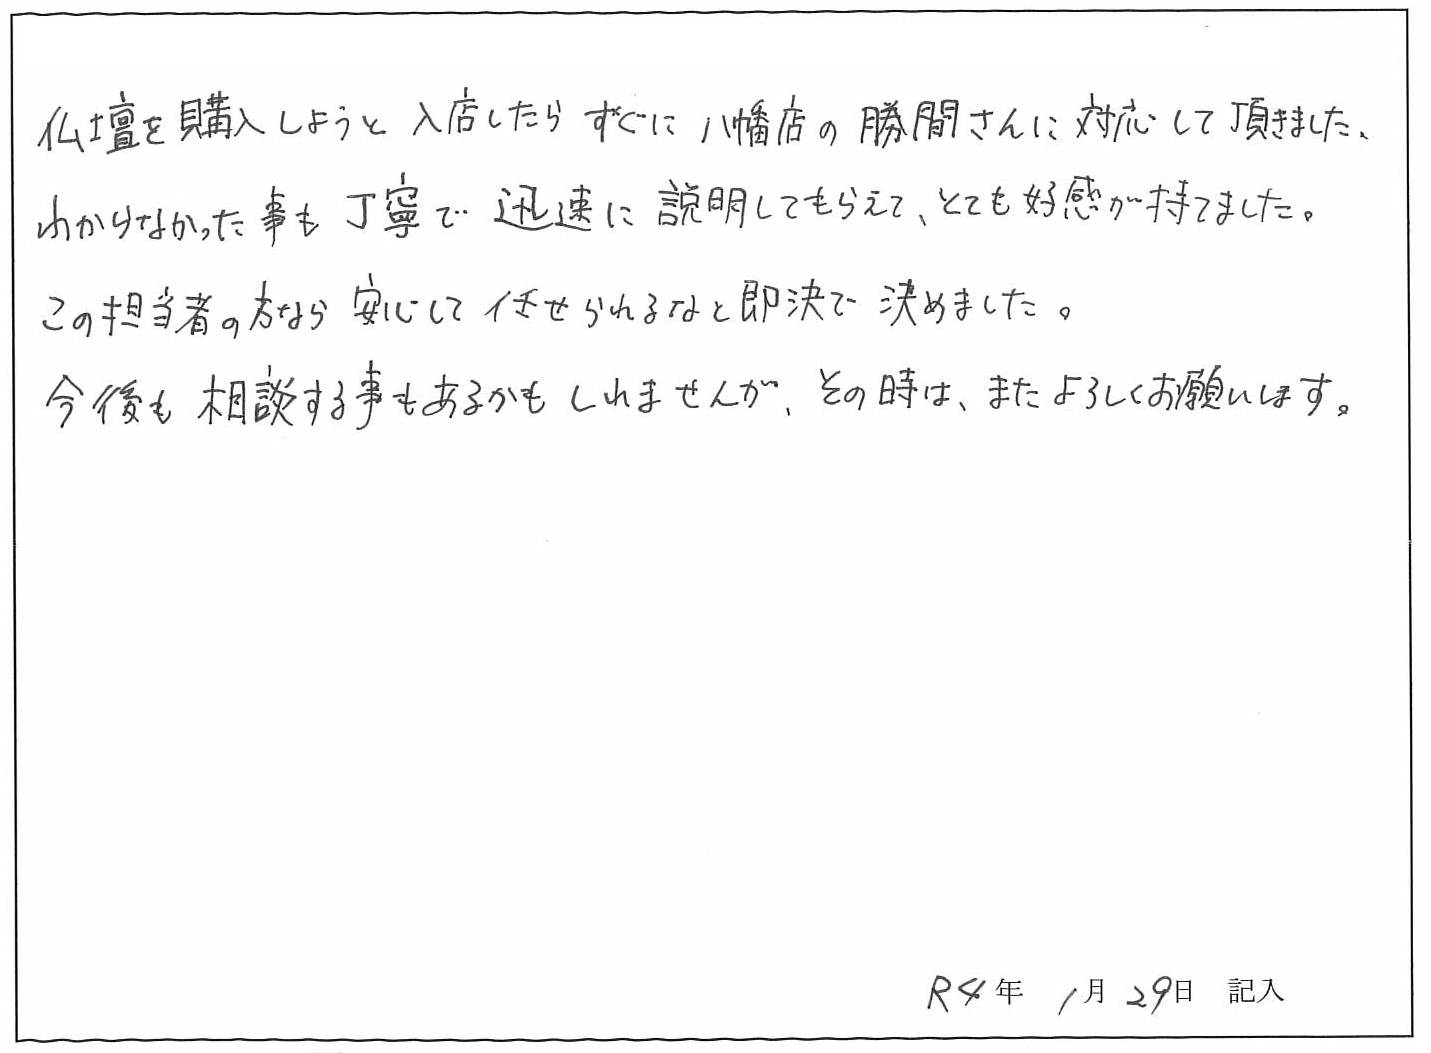 仏壇を購入しようと入店したらすぐに八幡店の勝間さんに対応して頂きました、
わからなかった事も丁寧で迅速に説明してもらえて、とても好感が持てました。
この担当者の方なら安心して任せられるなと即決で決めました。
今後も相談する事もあるかもしれませんが、その時は、またよろしくお願いします。
R4年 1月29日 記入